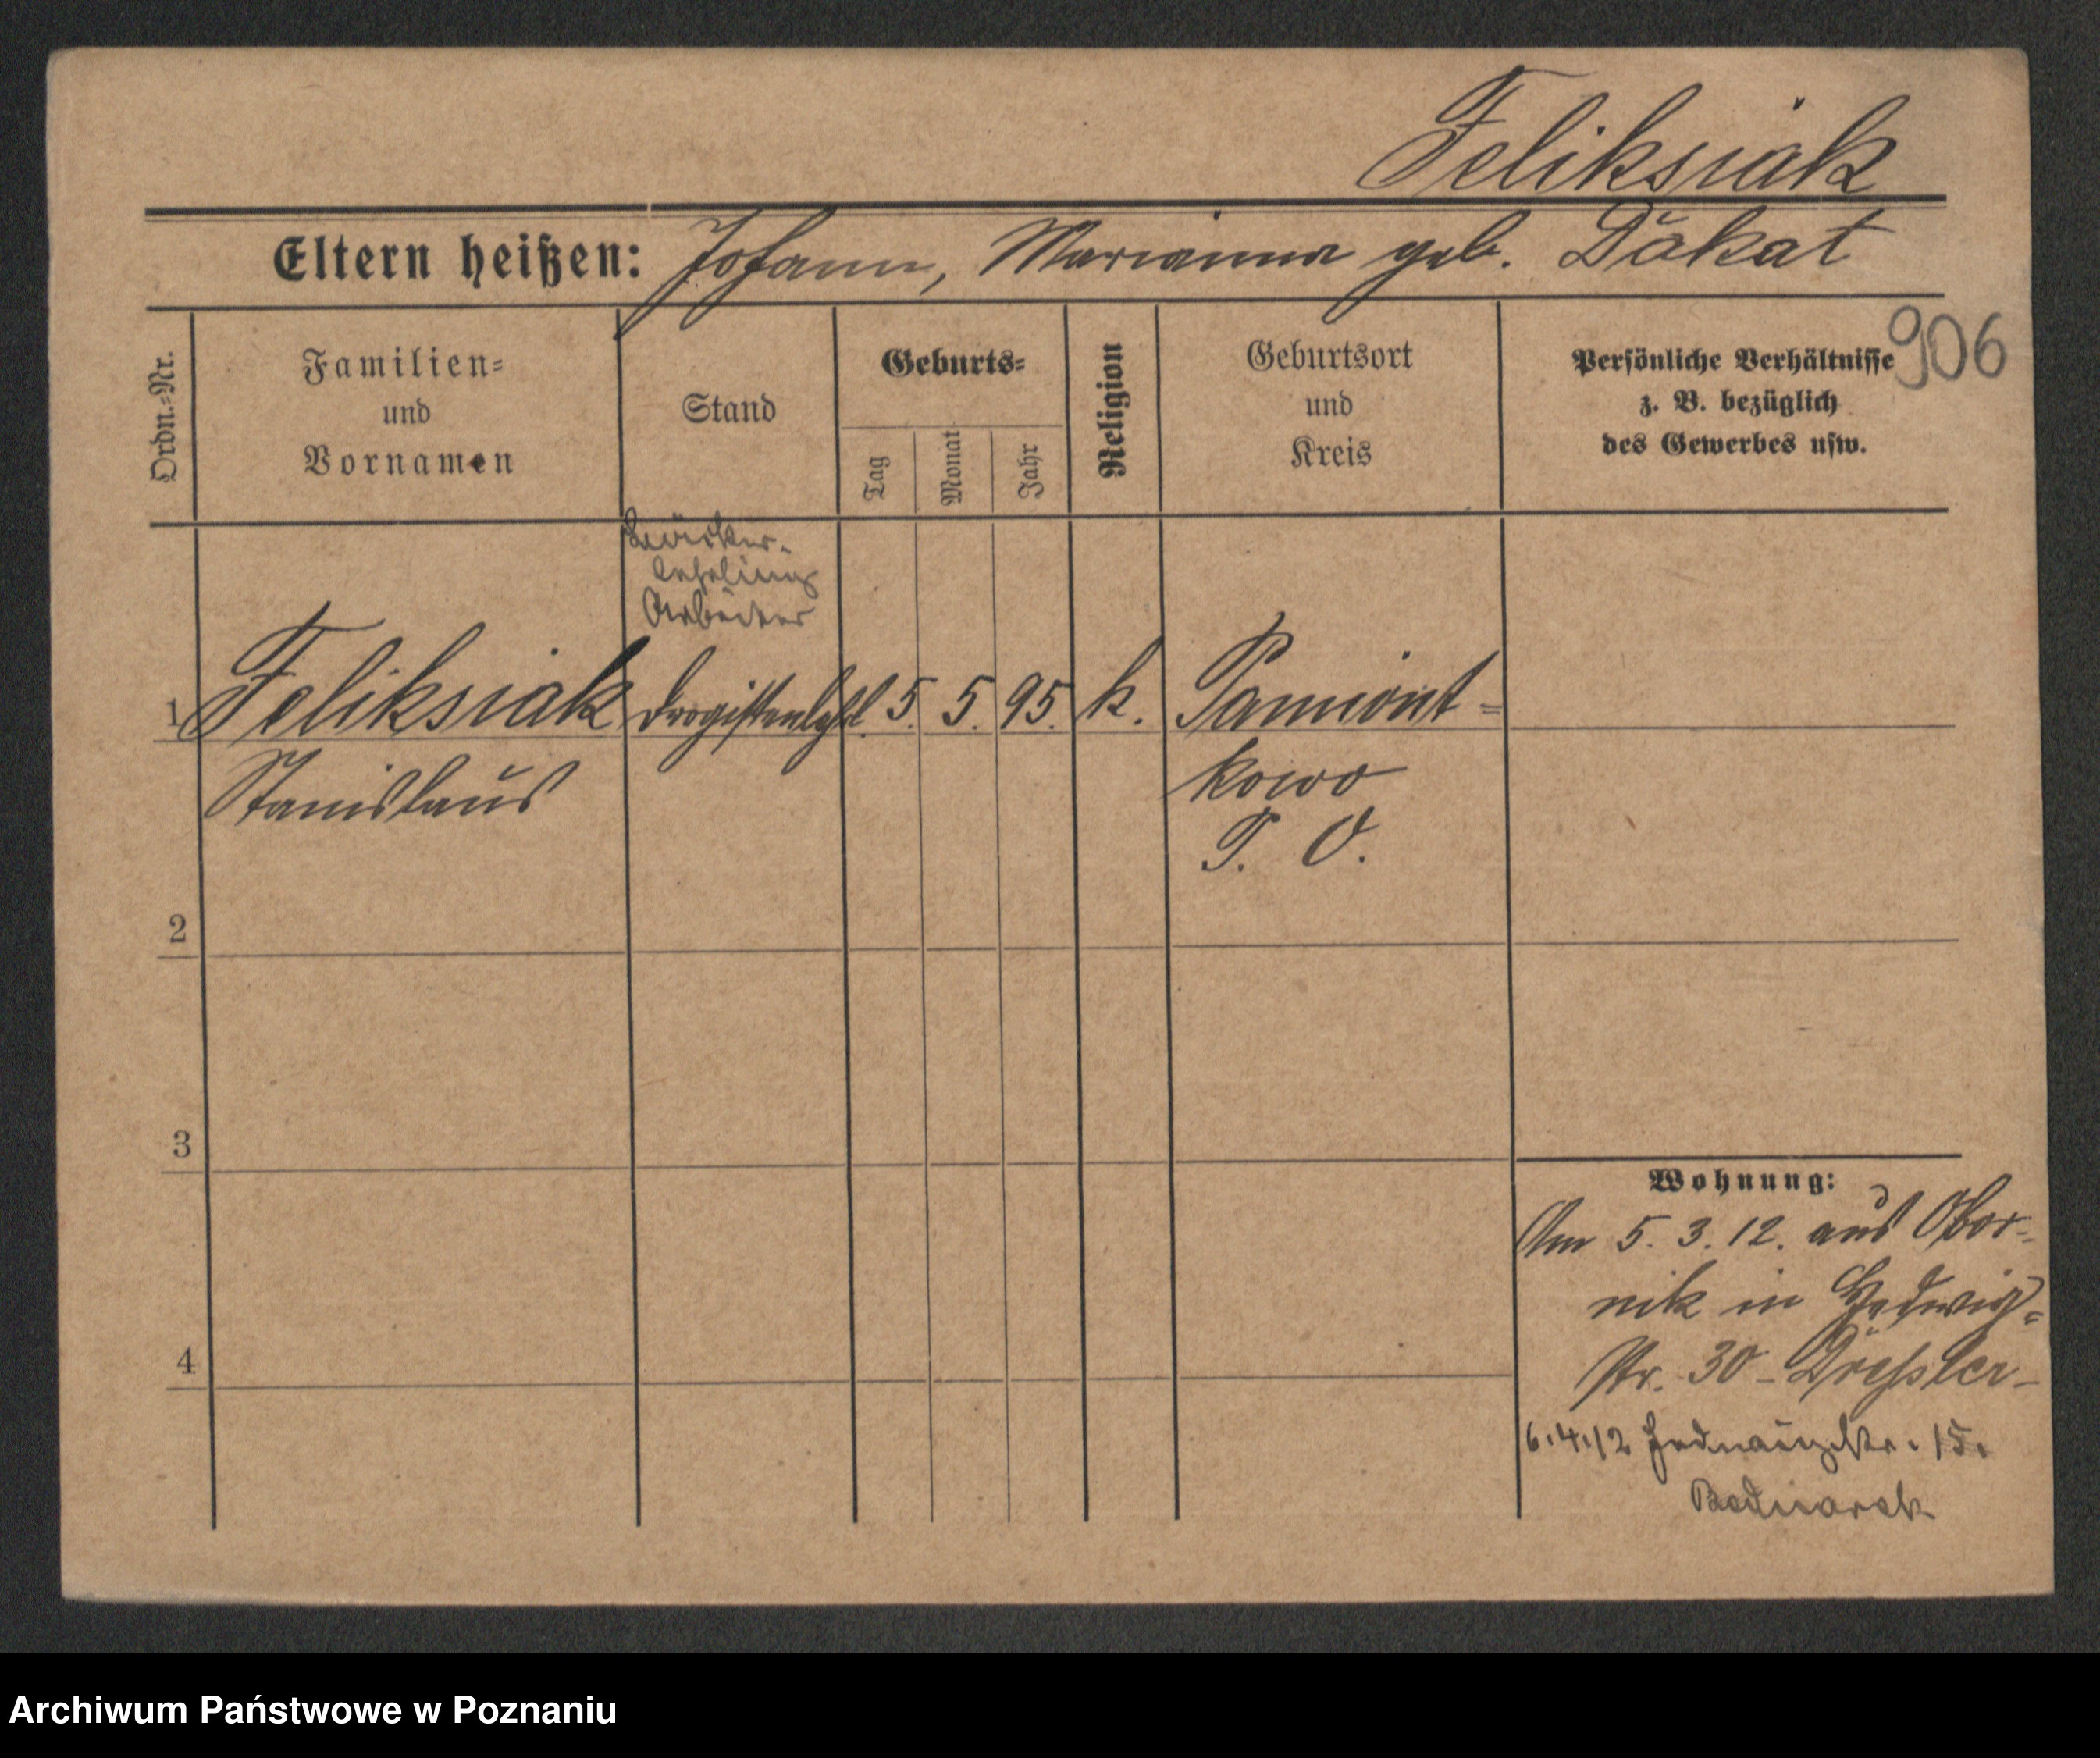 Feliksiak
Eltern heißen: Johann, Marianna geb. Dukat
906
Ordn.-Nr.
Familien-
und
Vornamen
Stand
Geburts-
Tag
Monat
Jahr
Religion
Geburtsort
und
Kreis
Persönliche Verhältnisse
z. B. bezüglich
des Gewerbes usw.
lehrling
Arbeiter
1 Feliksiak Drogistenlehrl. 5. 5. 95. k. Pamiont-
Stanislaus
kowo
P. O.
2
3
4
Wohnung:
Am 5. 3. 12. aus Obor-
nik in Hedwig-
str. 30 - Dressler -
6.4.12 15.
Bednarek
Archiwum Państwowe w Poznaniu